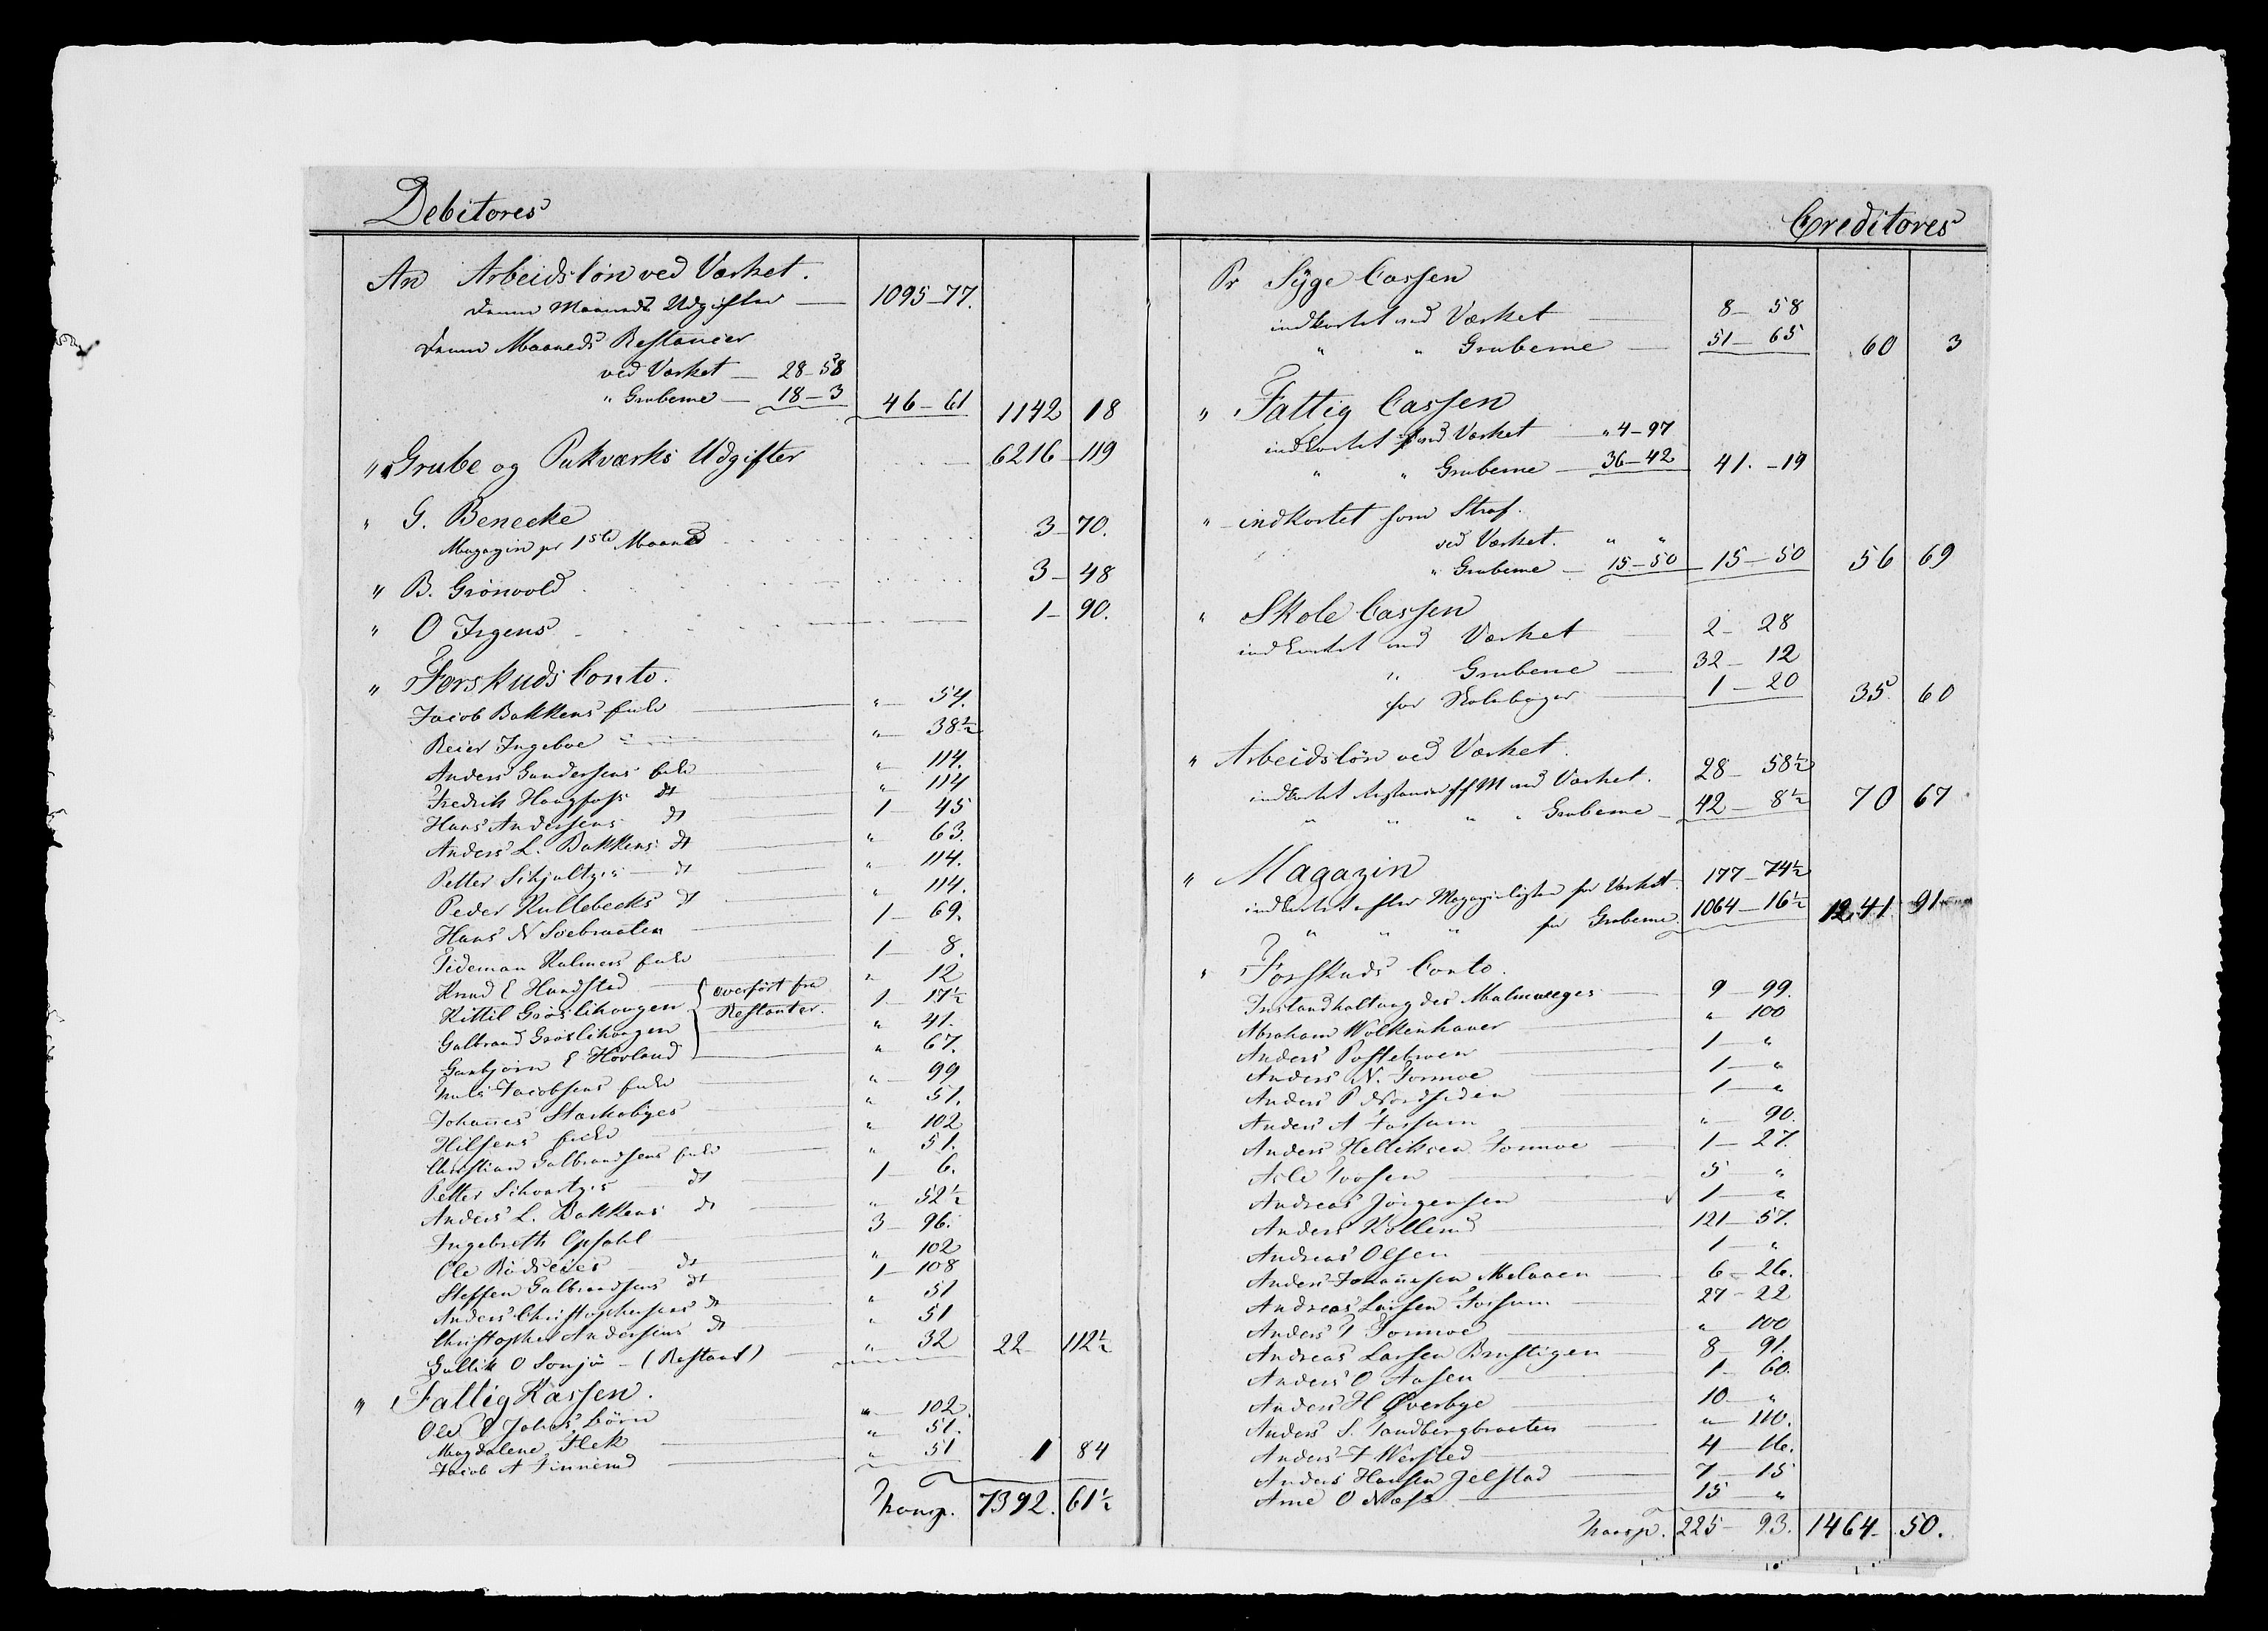 Debitores
An Arbeidslön ved Værket.
Denne Maaneds Udgifter — 1095-77.
Denne Maaneds Restancer
ved Værket — 28-58
" Gruberne — 18-3 46-61 1142 18
" Grube og Pukværks Udgifter 6216-119
" G. Benecke
Magazin pr 1ste Maaned 3-70.
" B. Grönvold 3-48
" O Irgens 1-90.
" Forskuds Conto.
Jacob Bakkens Enke " 54.
Reier Ingeboe " 38½
Anders Gundersens Enke " 114.
Fredrik Haugfoss dt " 114
Hans Andersens dt 1-45
Anders L. Bakkens dt " 63.
Petter Schjultzes dt " 114.
Peder Kullebecks dt " 114.
Hans N Soebraaten 1-69.
Tideman Kulmers Enke 1-8.
Knud E Hundstad " 12
Kittil Gröslihougen 1-17½
{ overført fra Restanter.
Gulbrand Gröslihougen " 41.
Gunbjörn E Hövland " 67.
Niels Jacobsens Enke " 99
Johannes Storkobyes " 51.
Hilsens Enke " 102
Christian Gulbrandsens Enke " 51.
Petter Schvartzes dt 1-6.
Anders L. Bakkens dt " 52½
Ingebreth Opsahl 3-96.
Ole Rödseies dt " 102
Steffen Gulbrandsens dt 1-108
Anders Christophersens dt " 51
Christopher Andersens dt " 51
Gullik O Sonjö — (Restant) " 32 22 112½
" Fattig Kassen.
Ole Johns. Börn " 102.
Magdalene Flek " 51.
Jacob A Finnerud " 51 1 84
Transp. 7392. 61½
Creditores
Pr Syge Cassen
indkortet ved Værket 8-58
" " Gruberne 51-65 60 3
" Fattig Cassen
indkortet ved Værket " 4-97
" " Gruberne 36-42 41.-19
" indkortet som Straf.
ved Værket. " "
" Gruberne 15-50 15-50 56 69
" Skole Cassen
indkortet ved Værket 2-28
" Gruberne 32-12
for Skolebøger 1-20 35. 60
" Arbeidslön ved Værket.
indkortet Restancer ff M ved Værket. 28-58½
" " " " Gruberne 42-8½ 70 67
" Magazin
indkortet efter Magazinlisten for Værket. 177-74½
" " " for Gruberne. 1064-16½ 1241 91
" Forskuds Conto.
Instandholtung des Malmweges 9-99.
Abraham Wolkenhauer " 100
Anders Postebroen 1-"
Anders N. Formoe 1-"
Anders P Nordsiden 1-"
Anders A Fossum " 90.
Anders Helliksen Formoe 1-27.
Asle Toosen 5-"
Andreas Jörgensen 1-"
Anders Kollerud 121-57.
Andreas Olsen 1-"
Anders Johannesen Melaaen 6-26.
Andreas Larsen Fossum 27-22
Anders T Formoe " 100
Andreas Larsen Brustigen 8-91.
Anders O Aasen 1-60.
Anders H Overbye 10-"
Anders S. Sandbergbraaten " 110.
Anders T Wersted 4-16.
Anders Hansen Jelstad 7-15
Arne O Næss 15-"
Transp. 225-93. 1464-50.